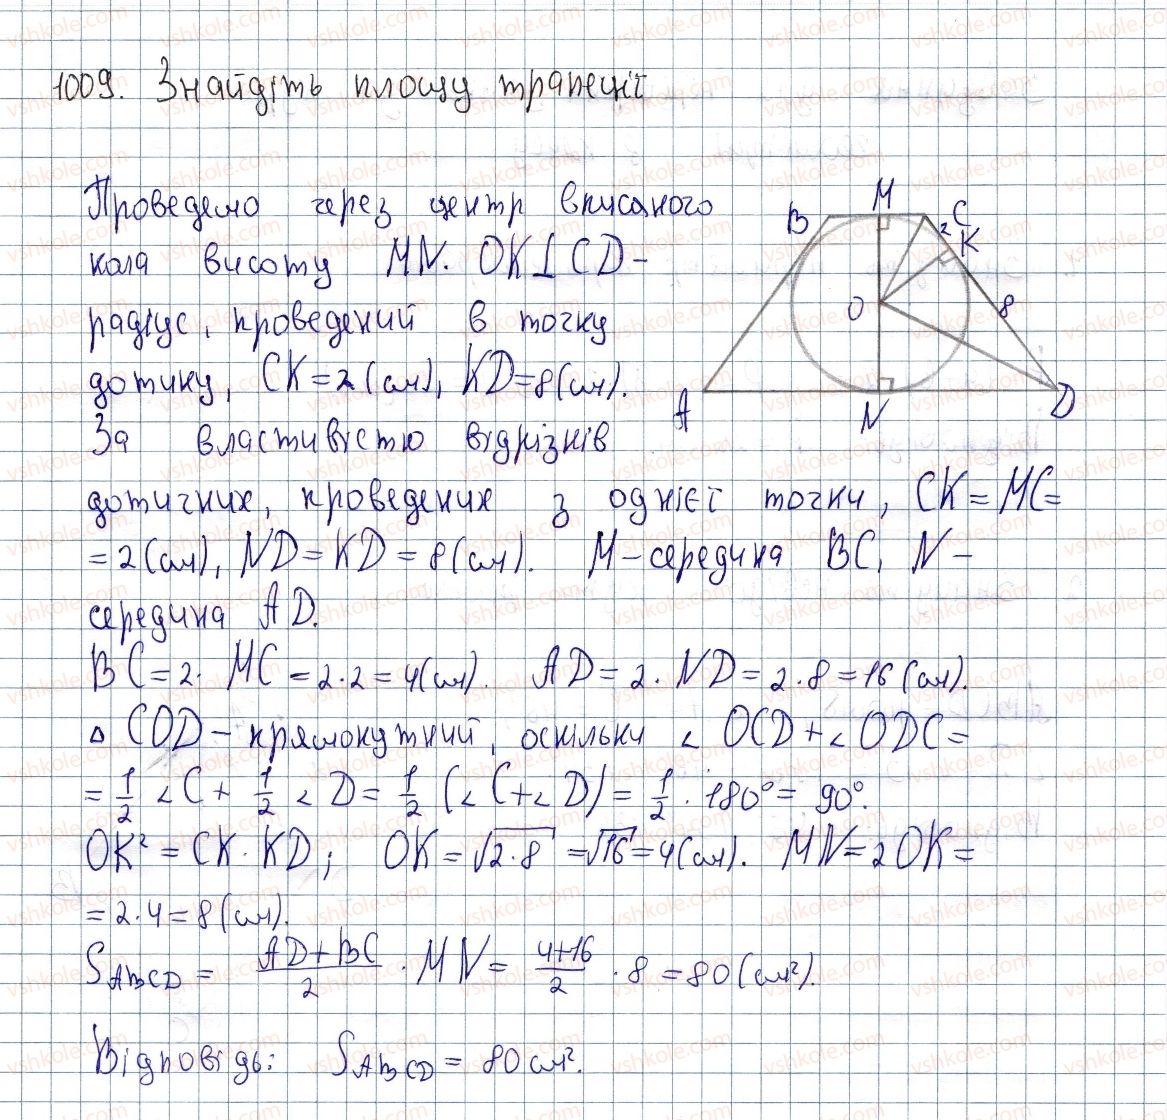 1009. Знайдіть площу трапеції
Проведемо через центр вписаного
кола висоту MN. OK⊥CD –
радіус, проведений в точку
дотику, CK = 2 (см), KD = 8 (см).
За властивістю відрізків
дотичних, проведених з однієї точки, CK = MC =
= 2 (см), ND = KD = 8 (см). M – середина BC, N –
середина AD.
BC = 2 · MC = 2 · 2 = 4 (см). AD = 2 · ND = 2 · 8 = 16 (см).
△ COD – прямокутний, оскільки ∠ OCD + ∠ ODC =
= 1/2 ∠ C + 1/2 ∠ D = 1/2 (∠ C + ∠ D) = 1/2 · 180° = 90°.
OK² = CK · KD; OK = √2·8 = √16 = 4 (см). MN = 2OK =
= 2 · 4 = 8 (см).
S ABCD = (AD + BC)/2 · MN = (4+16)/2 · 8 = 80 (см²).
Відповідь: S ABCD = 80 см².
M
B
C
2
K
O
8
A
N
D
vshkole.com